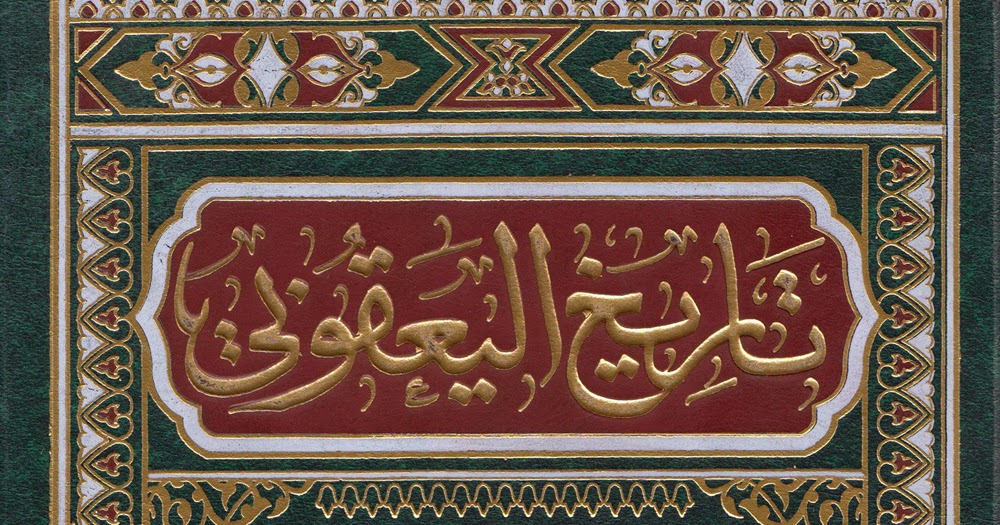 تاريخ اليعقوبي